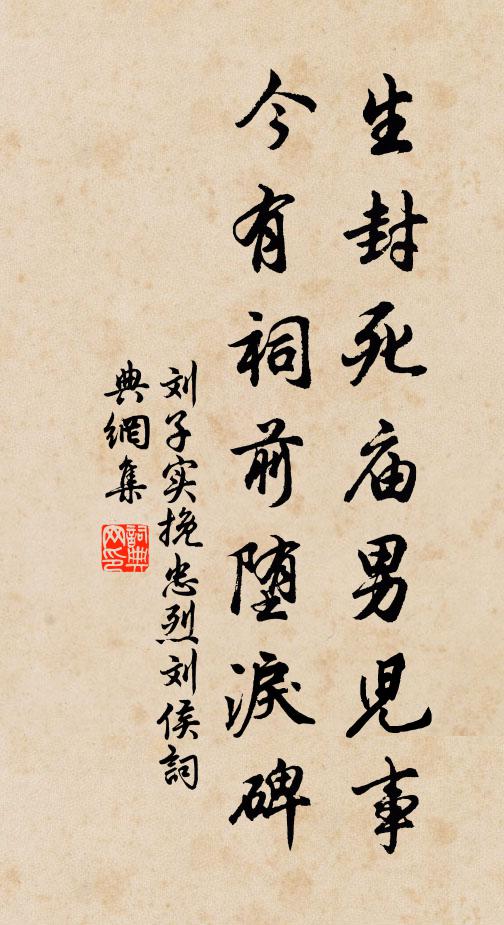 生封死庙男児事
今有祠前堕淚碑
刘子实挽忠烈刘侯詞
典網集
詞典网印